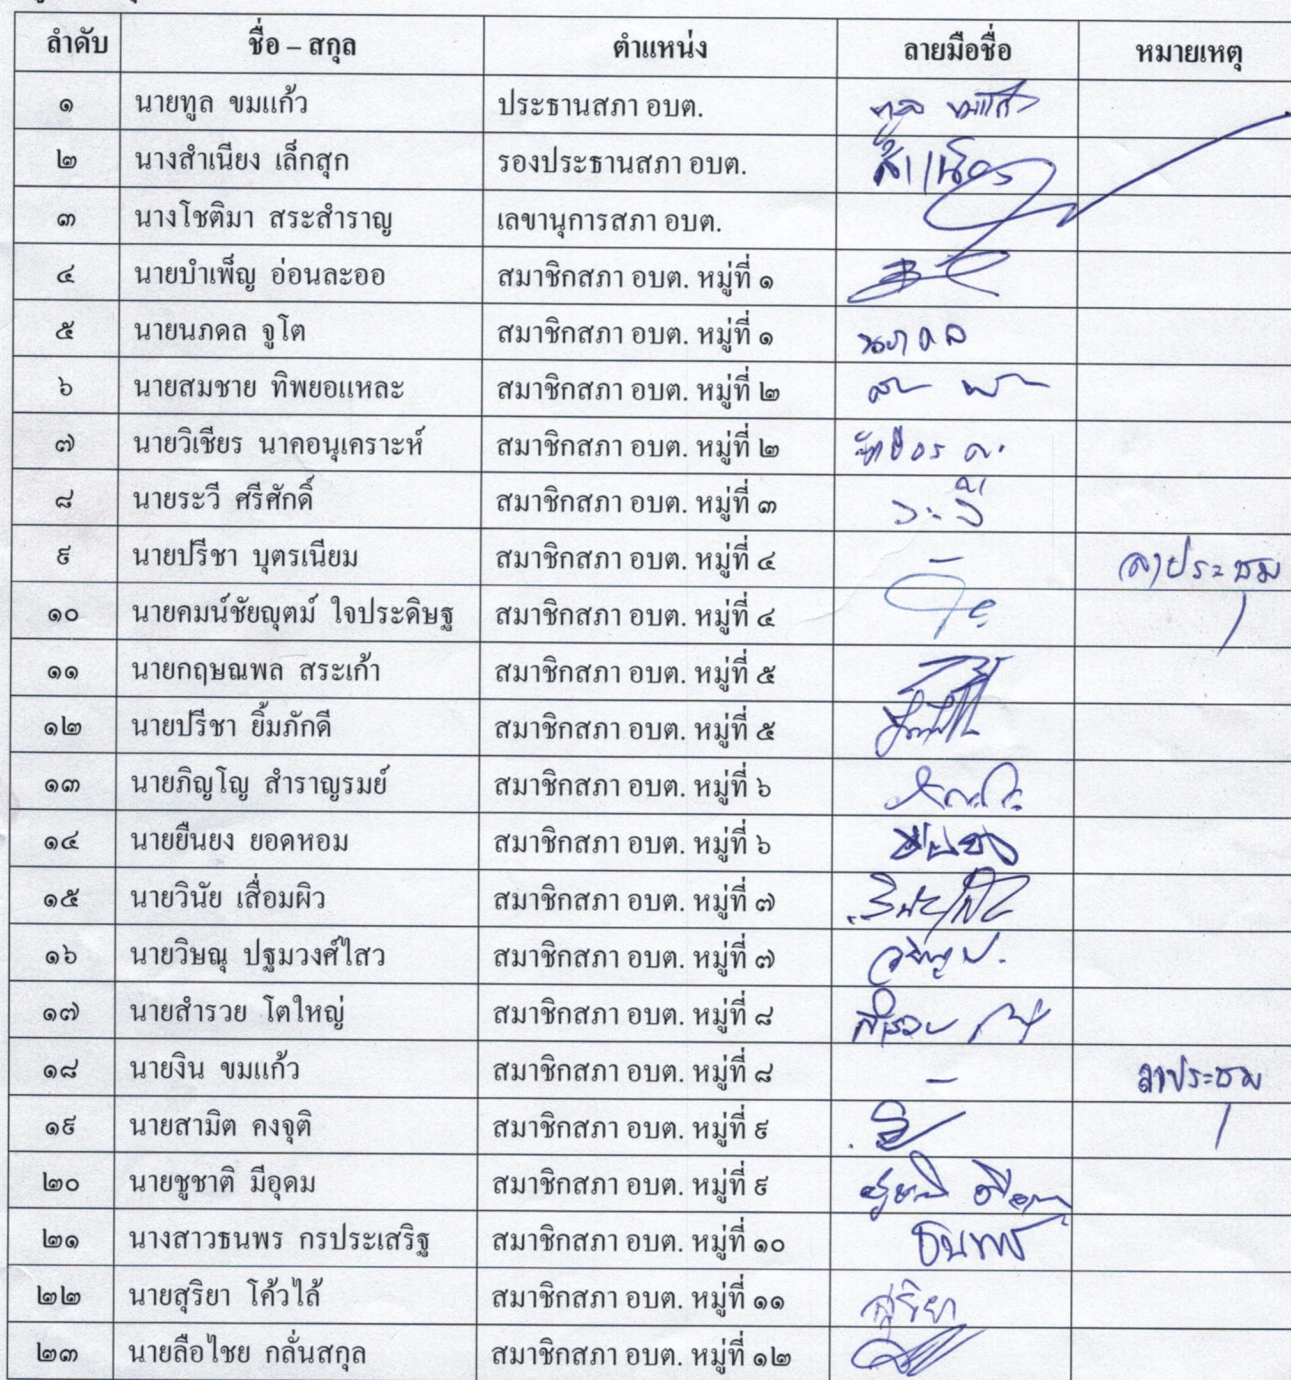 ลำดับ ชื่อ – สกุล ตำแหน่ง ลายมือชื่อ หมายเหตุ
๑ นายทูล ขมแก้ว ประธานสภา อบต. ทูล ขมแก้ว
๒ นางสำเนียง เล็กสุก รองประธานสภา อบต. สำเนียง
๓ นางโชติมา สระสำราญ เลขานุการสภา อบต.
๔ นายบำเพ็ญ อ่อนละออ สมาชิกสภา อบต. หมู่ที่ ๑
๕ นายนภดล จูโต สมาชิกสภา อบต. หมู่ที่ ๑ นภดล
๖ นายสมชาย ทิพยอแหละ สมาชิกสภา อบต. หมู่ที่ ๒
๗ นายวิเชียร นาคอนุเคราะห์ สมาชิกสภา อบต. หมู่ที่ ๒
๘ นายระวี ศรีศักดิ์ สมาชิกสภา อบต. หมู่ที่ ๓ ระวี
๙ นายปรีชา บุตรเนียม สมาชิกสภา อบต. หมู่ที่ ๔ – ลาประชุม
๑๐ นายคมน์ชัยญุตม์ ใจประดิษฐ สมาชิกสภา อบต. หมู่ที่ ๔
๑๑ นายกฤษณพล สระเก้า สมาชิกสภา อบต. หมู่ที่ ๕
๑๒ นายปรีชา ยิ้มภักดี สมาชิกสภา อบต. หมู่ที่ ๕
๑๓ นายภิญโญ สำราญรมย์ สมาชิกสภา อบต. หมู่ที่ ๖
๑๔ นายยืนยง ยอดหอม สมาชิกสภา อบต. หมู่ที่ ๖ ยืนยง
๑๕ นายวินัย เสื่อมผิว สมาชิกสภา อบต. หมู่ที่ ๗
๑๖ นายวิษณุ ปฐมวงศ์ไสว สมาชิกสภา อบต. หมู่ที่ ๗ วิษณุ ป.
๑๗ นายสำรวย โตใหญ่ สมาชิกสภา อบต. หมู่ที่ ๘ สำรวย
๑๘ นายงิน ขมแก้ว สมาชิกสภา อบต. หมู่ที่ ๘ – ลาประชุม
๑๙ นายสามิต คงจุติ สมาชิกสภา อบต. หมู่ที่ ๙
๒๐ นายชูชาติ มีอุดม สมาชิกสภา อบต. หมู่ที่ ๙ ชูชาติ มีอุดม
๒๑ นางสาวธนพร กรประเสริฐ สมาชิกสภา อบต. หมู่ที่ ๑๐ ธนพร
๒๒ นายสุริยา โค้วไล้ สมาชิกสภา อบต. หมู่ที่ ๑๑ สุริยา
๒๓ นายลือไชย กลั่นสกุล สมาชิกสภา อบต. หมู่ที่ ๑๒